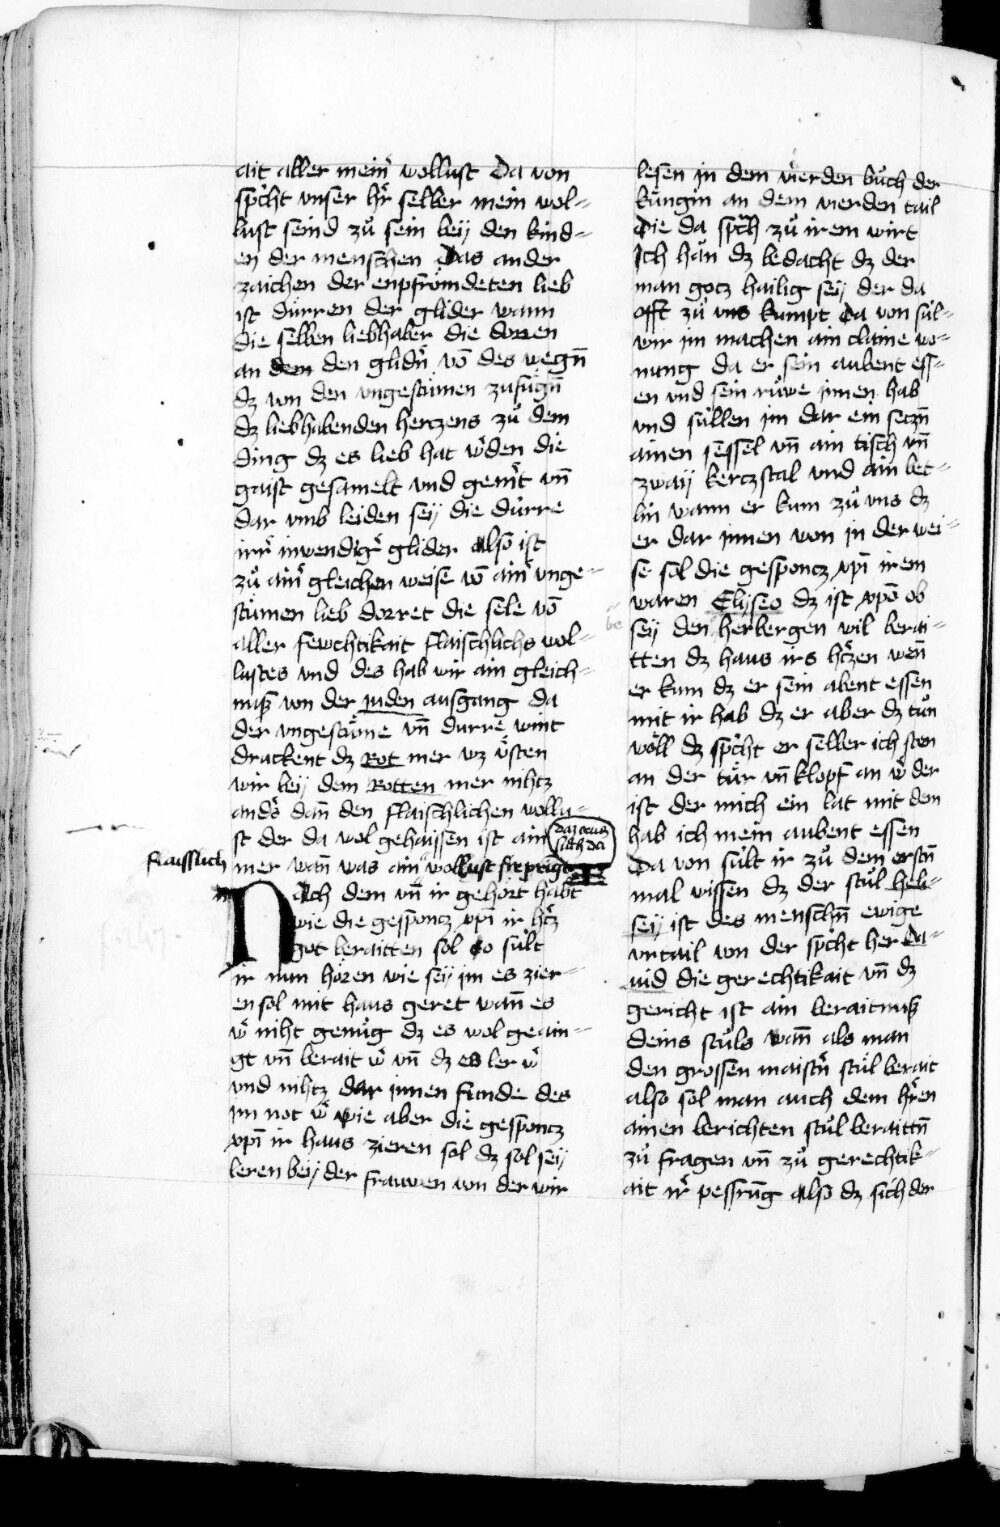 ait aller mein̄ wollust Da von
spͤcht vnser hr̄ selber mein wol-
lust seind zů sein beÿ den kind-
en der menschen Das ander
zaichen der enpfrömdeten lieb
ist dürren der glider wann
die selben liebhaber die dorren
an dem den glidn̄ vō des wegn̄
dz von den vngestümen zufügn̄
dz liebhabenden herczens zů dem
ding dz es lieb hat wͤden die
gaist gesamelt vnd gemͤt vn̄
dar vmb leiden seÿ die dürre
irrͤ inwendigͤ glider Also ist
zů ainͤ gleichen weise vō ainͤ vnge-
stümen lieb dorret die sele vō
aller fewchtikait flaischlichs wol-
lustes vnd des hab wir ain gleich-
nuß von der juden ausgang da
der vngestüme vn̄ durre wint
drackent dz Rot mer wz östen
wir beÿ dem Rotten mer nihtz
andͤs dan̄ den flaischlichen wollu-
st der da wol gehaissen ist ain
fraisslich
mer wan̄ was ain wollust
Nach dem vn̄ ir gehört habt
wie die gesponcz xp̄i ir hͤtz
got beraitten sol So sült
ir nun hören wie seÿ im es zier-
en sol mit haus geret wan̄ es
wͤ niht genůg dz es wol geain-
gt vn̄ berait wͤ vn̄ dz es ler wͤ
vnd nihtz dar jnnen funde des
im not wͤ wie aber die gesponcz
xp̄i ir haus zieren sol dz sol seÿ
leren beÿ der frauwen von der wir
lesen in dem vierden bůch der
küngin an dem vierden tail
Die da spͤch zů irem wirt
Ich hän dz bedacht dz der
man gocz hailig seÿ der da
offt zů vns kumpt Da von sül-
wir im machen ain claine wo-
nung da er sein aubent ess-
en vnd sein růwe jnnen hab
vnd süllen im dar ein seczn̄
ainen sessel vn̄ ain tisch vn̄
zwaÿ kerczstal vnd ain bet-
lin wann er kum zů vns dz
er dar jnnen won in der wei-
se sol die gesponcz xp̄i irem
waren Elÿseo dz ist xp̄o ob
seÿ den herbergen wil berai-
tten dz haus irs hͤtzen wen̄
er kum dz er sein abent essen
mit ir hab dz er aber dz tůn
wöll dz spͤcht er selber ich sten
an der tür vn̄ klopf an wͤ der
ist der mich ein lat mit dem
hab ich mein aubent essen
Da von sült ir zů dem erstn̄
mal wissen dz der stůl heli-
seÿ ist des menschn̄ ewige
vrtail von der spͤcht her Da-
uid die gerechtikait vn̄ dz
gericht ist ain beraitnuß
deins stůls wan̄ als man
den grossen maistn̄ stůl berait
also sol man auch dem hͤren
ainen berichten stůl beraittn̄
zů fragen vn̄ zů gerechtik-
ait irͤ pessrūg Also dz sich der